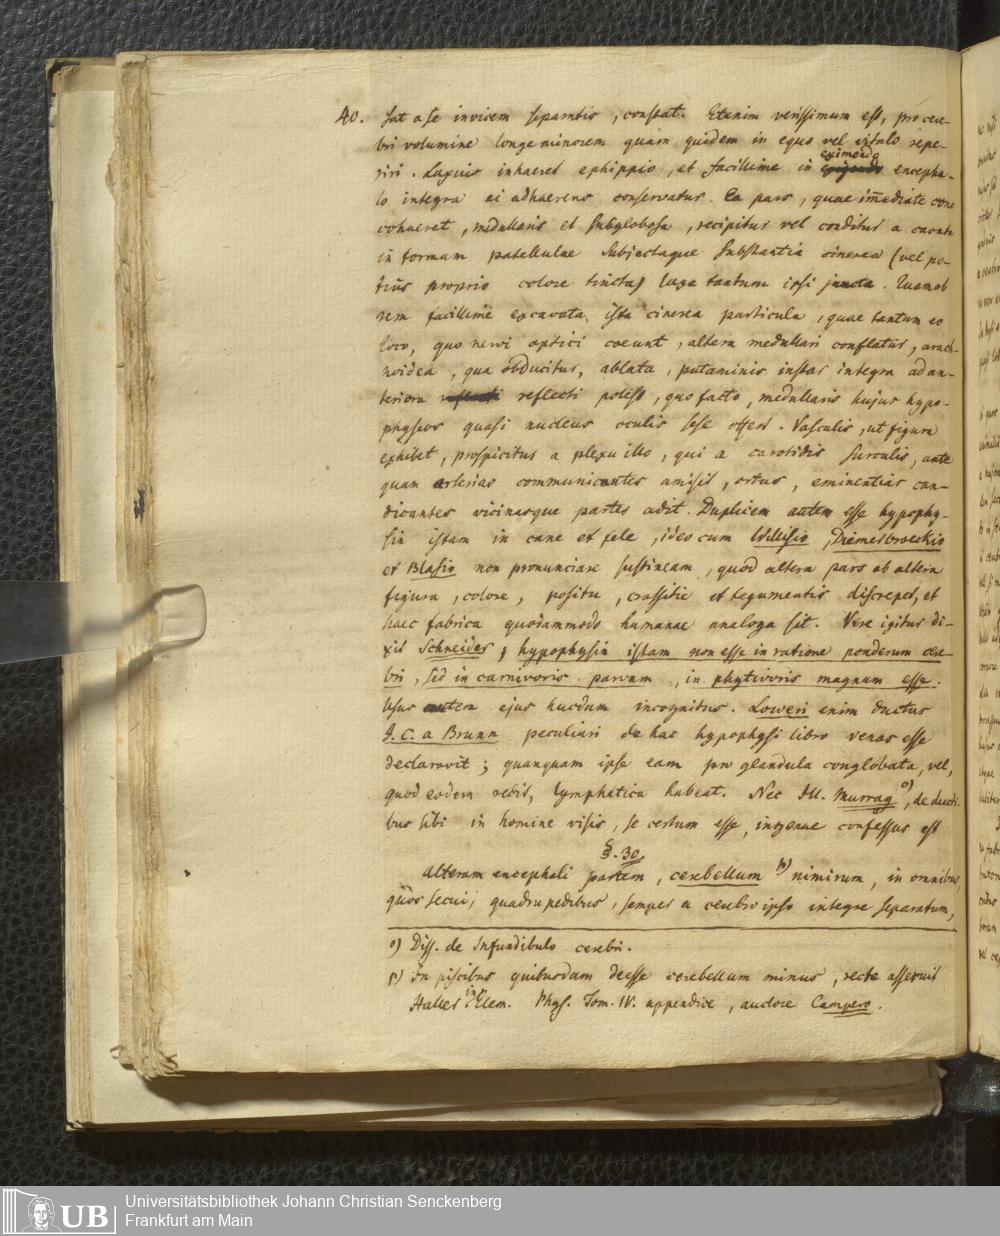 40. sat a se invicem separatis, constat. Etenim verissimum est, pro cere-
bri volumine longe minorem quam quidem in equo vel vitulo repe-
riri. Laxius inhaeret ephippio, et facillime in eximendo encepha-
lo integra ei adhaerens conservatur. Ea pars, quae im̄ediate cono
cohaeret, medullaris et subglobosa, recipitur vel conditur a cavata
in formam patellulae subjectaque substantia cinerea (vel po-
tius proprio colore tincta) laxe tantum ipsi juncta. Quamob
rem facillime excavata ista cinerea particula, quae tantum eo
loco, quo nervi optici coeunt, altera medullari conflatur, arach-
noidea, qua obducitur, ablata, putaminis instar integra ad an-
teriora reflecti potest, quo facto, medullaris hujus hypo-
physeos quasi nucleus oculis sese offert. Vasculis, ut figura
exhibet, prospicitur a plexu illo, qui a carotidis surculis, ante
quam arterias communicantes amisit, ortus, eminentias can-
dicantes vicinasque partes adit. Duplicem autem esse hypophy-
sin istam in cane et fele, ideo cum Willisio, Diemerbroeckio
et Blasio non pronunciare sustineam, quod altera pars ab altera
figura, colore, positu, crassitie et tegumentis discrepet, et
haec fabrica quodammodo humanae analoga sit. Vere igitur di-
xit Schneider, hypophysin istam non esse in ratione ponderum cere-
bri, sed in carnivoris parvam, in phytivoris magnam esse.
Usus autem ejus hucdum incognitus. Loweri enim ductus
J. C. a Brunn peculiari de hac hypophysi libro venas esse
declaravit; quanquam ipse eam pro glandula conglobata, vel,
quod eodem redit, lymphatica habeat. Nec Ill. Murray o), de ducti-
bus sibi in homine visis, se certum esse, ingenue confessus est
§. 30.
Alteram encephali partem, cerebellum p) nimirum, in omnibus,
quos secui, quadrupedibus, semper a cerebro ipso integre separatum,
o) Diss. de Infundibulo cerebri.
p) In piscibus quibusdam deesse cerebellum minus, recte asseruit
Haller in Elem. Phys. Tom. IV. appendice, auctore Campero.
UB
Universitätsbibliothek Johann Christian Senckenberg
Frankfurt am Main